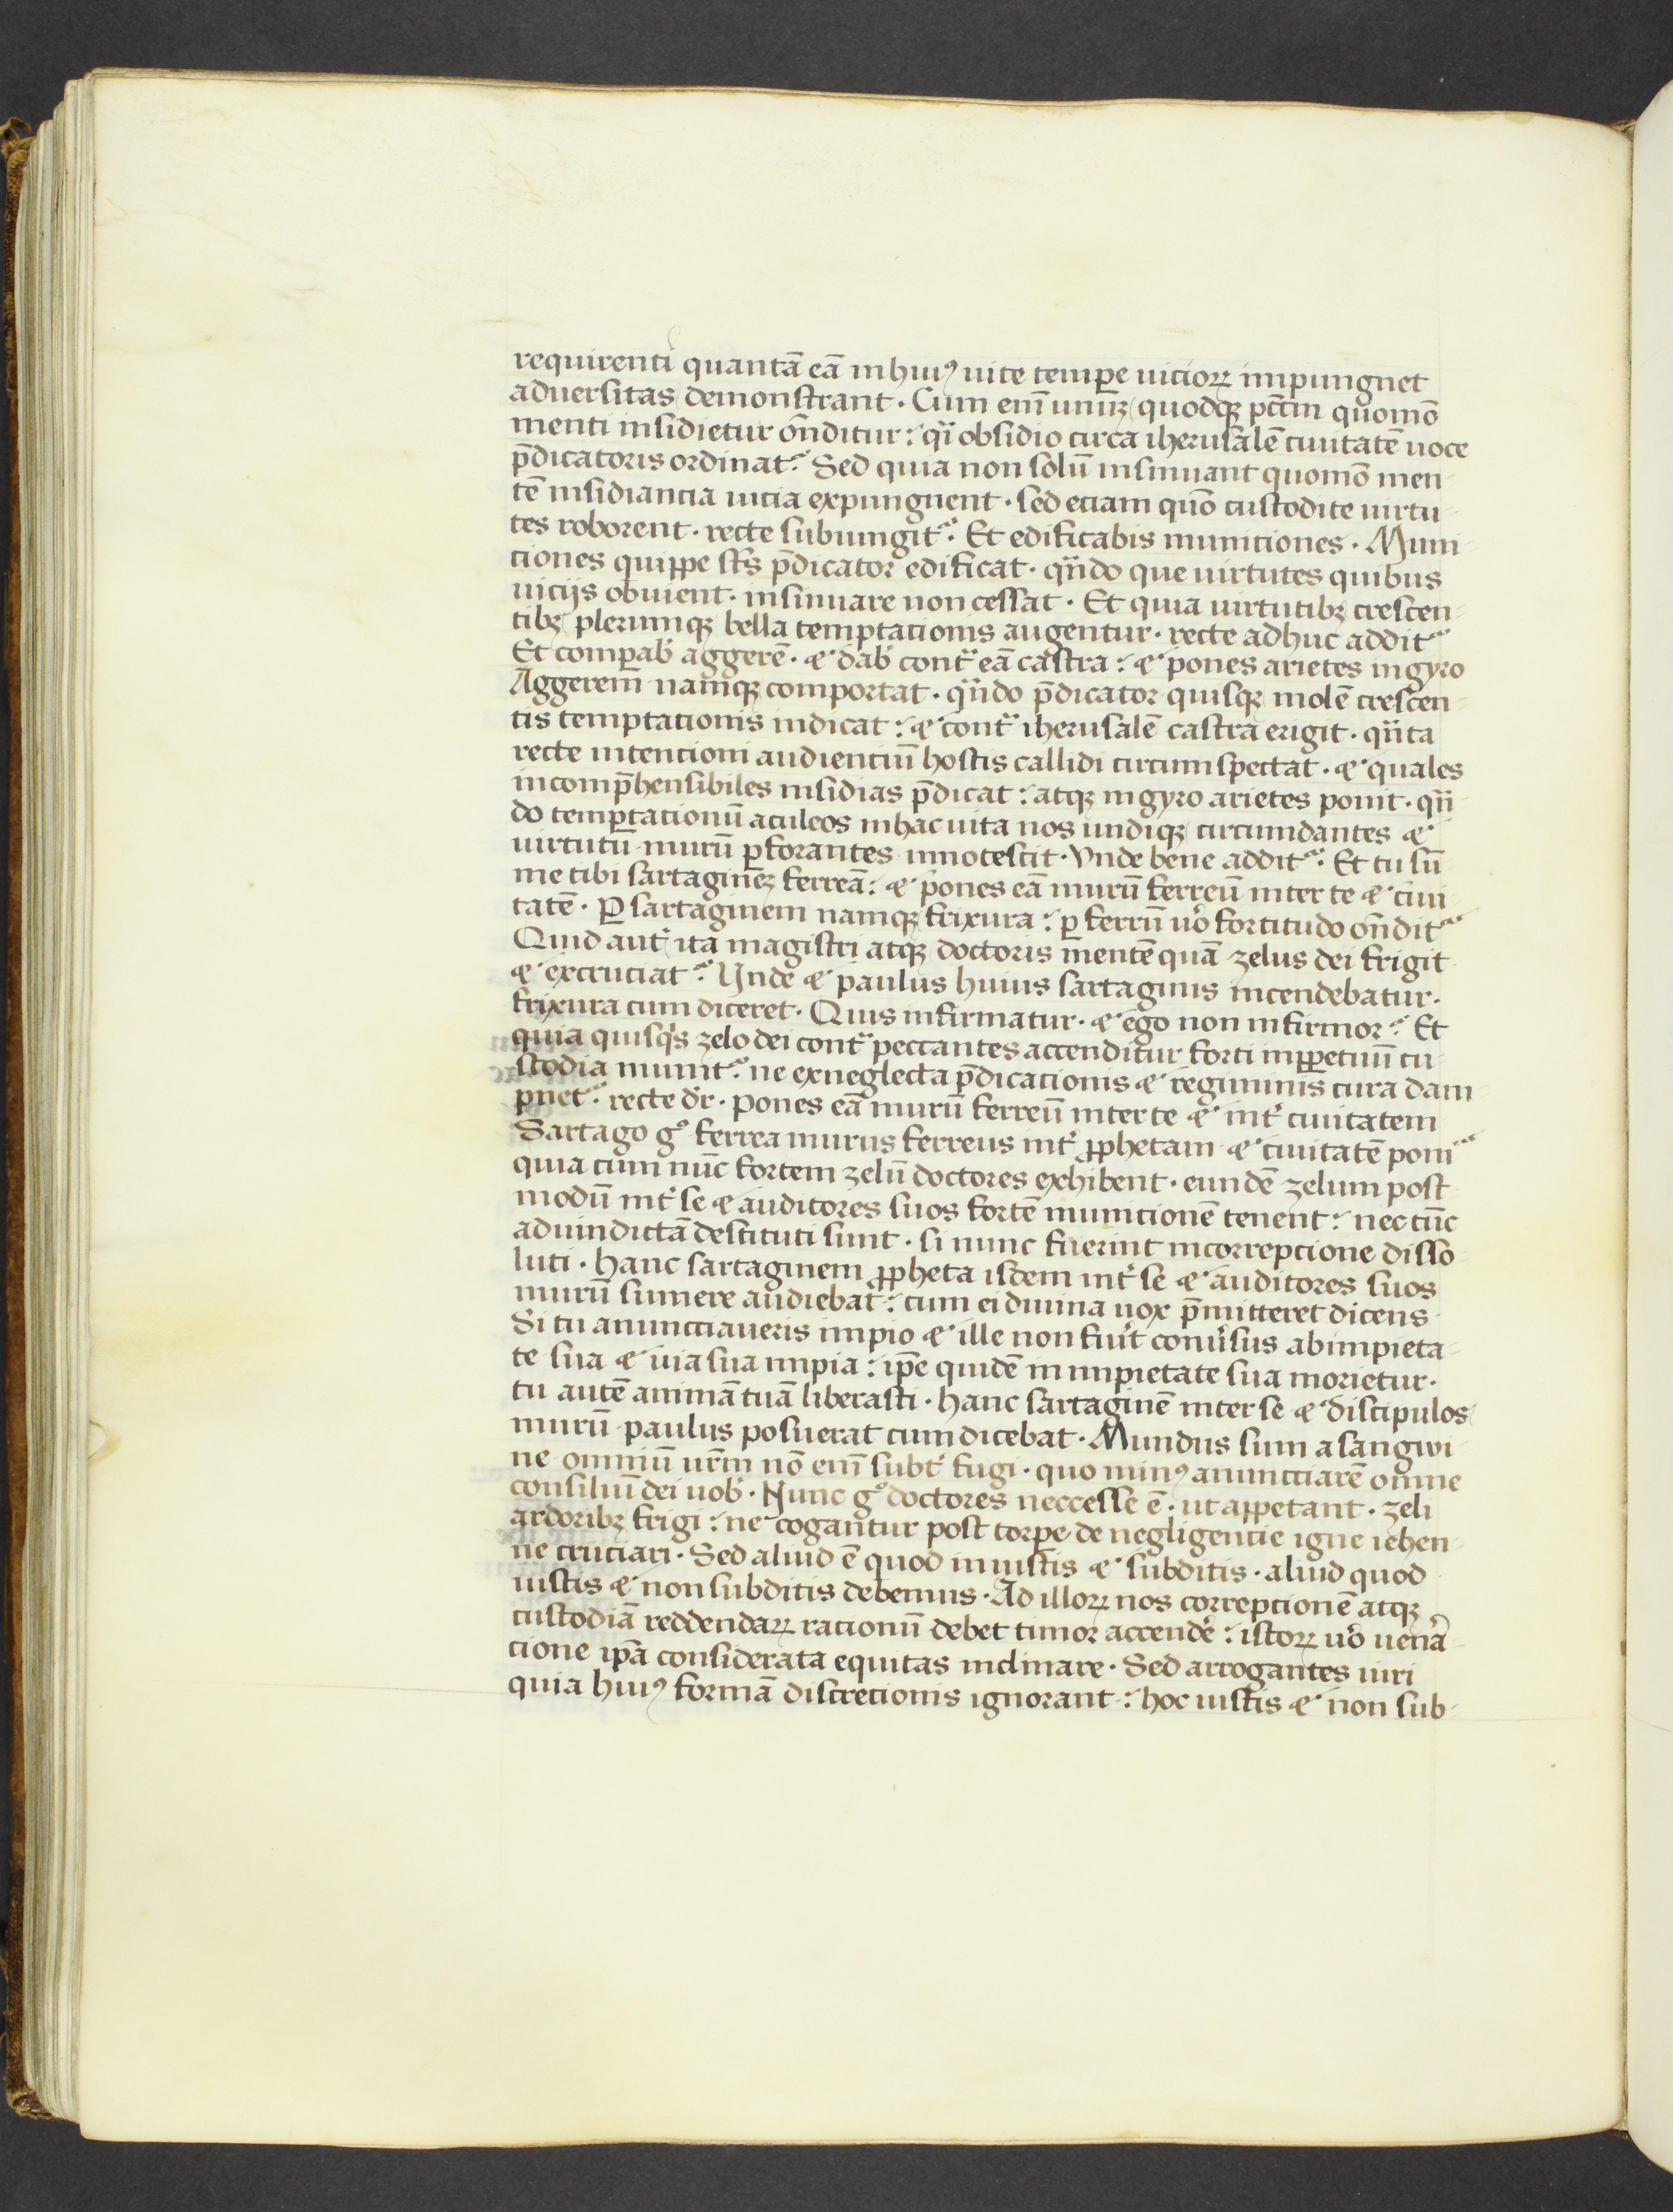 requirenti quantā eā in huiꝰ uite temꝑe uicioꝝ impungnet
aduersitas demonstrant · Cum enī unūqꝫ quodqꝫ pctm̄ quomō
menti insidietur oñditur : qͣi obsidio circa iherusalē ciuitatē uoce
p̄dicatoris ordinat᷑ Sed quia non solū insinuant quomō men
tē insidiancia uicia expungnent · sed eciam quō custodite uirtu
tes roborent · recte subiungit᷑ · Et edificabis municiones · Muni
ciones quippe sc̄s p̄dicator edificat · qn̄do que uirtutes quibus
uicijs obuient · insinuare non cessat · Et quia uirtutibꝫ crescen
tibꝫ plerumqꝫ bella temptacionis augentur · recte adhuc addit᷑
Et comꝑab̛ aggerē · ⁊ dab̛ contͣ eā castra : ⁊ pones arietes in gyro
Aggerem namqꝫ comportat · qn̄do p̄dicator quisqꝫ molē crescen
tis temptationis indicat : ⁊ contͣ iherusalē castra erigit · qn̄ ta
recte intencioni audienciū hostis callidi circumspectat · ⁊ quales
incomp̄hensibiles insidias p̄dicat : atqꝫ in gyro arietes ponit · qn̄
do temptacionū aculeos in hac uita nos undiqꝫ circumdantes ⁊
uirtutū murū ꝑforantes innotescit · Vnde bene addit᷑ · Et tu sū
me tibi sartaginēꝫ ferreā : ⁊ pones eā murū ferreū inter te ⁊ ciui
tatē · Ꝑ sartaginem namqꝫ frixura : ꝑ ferrū uͦo fortitudo oñdit᷑
Quid aut̛ ita magistri atqꝫ doctoris mentē quā zelus dei frigit
⁊ excruciat᷑ Vnde ⁊ paulus huius sartaginis incendebatur ·
frixura cum diceret · Quis infirmatur · ⁊ ego non infirmor : Et
quia quisqͥs zelo dei contͣ peccantes accenditur forti inꝑpetuū cu
stodia munit᷑ ne ex neglecta p̄dicacionis ⁊ regiminis cura dam
pnet᷑ recte dr̄ · pones eā murū ferreū inter te ⁊ int̛ ciuitatem
Sartago gͦ ferrea murus ferreus int̛ ꝓphetam ⁊ ciuitatē poni᷑
quia cum nūc fortem zelū doctores exhibent · eundē zelum post
modū int̛ se ⁊ auditores suos fortē municionē tenent : nec tūc
ad uindictā destituti sunt · si nunc fuerint in correpcione disso
luti · hanc sartaginem ꝓpheta isdem int̛ se ⁊ auditores suos
murū sumere audiebat : cum ei diuina uox p̄mitteret dicens
Si tu anuncciaueris impio ⁊ ille non fuit̛ conưsus ab impieta
te sua ⁊ uia sua impia : ip̄e quidē in impietate sua morietur ·
tu autē animā tuā liberasti · hanc sartaginē inter se ⁊ discipulos
murū paulus posuerat cum dicebat · Mundus sum a sangwi
ne omniū ur̄m nō enī subt̛ fugi · quo minꝰ anuncciarē omne
consiliū dei uob̛ · Nunc gͦ doctores neccesse ē · ut appetant · zeli
ardoribꝫ frigi : ne cogantur post torꝑe de negligencie igne iehen
ne cruciari · Sed aliud ē quod iniustis ⁊ subditis · aliud quod
iustis ⁊ non subditis debemus · Ad illoꝝ nos correptionē atqꝫ
custodiā reddendaꝝ racionū debet timor accende̛ : istoꝝ uͦo uenā
cione ip̄a considerata equitas inclinare · Sed arrogantes uiri
quia huiꝰ formā discretionis ignorant : hoc iustis ⁊ non sub